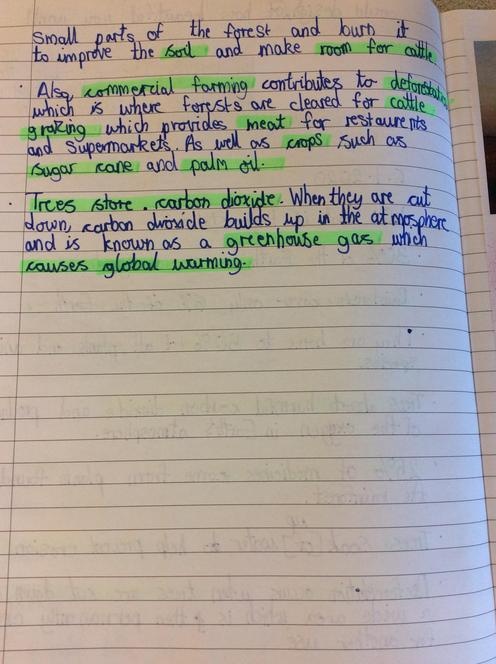 Small parts of the forest and burn it
to improve the soil and make room for cattle
Also, commercial farming contributes to deforestation
which is where forests are cleared for cattle
graking which provides meat for restaurents
and supermarkets. As well as crops such as
sugar cane and palm oil.
Trees store carbon dioxide. When they are cut
down, carbon dioxide builds up in the atmosphere
and is known as a greenhouse gas which
causes global warming.